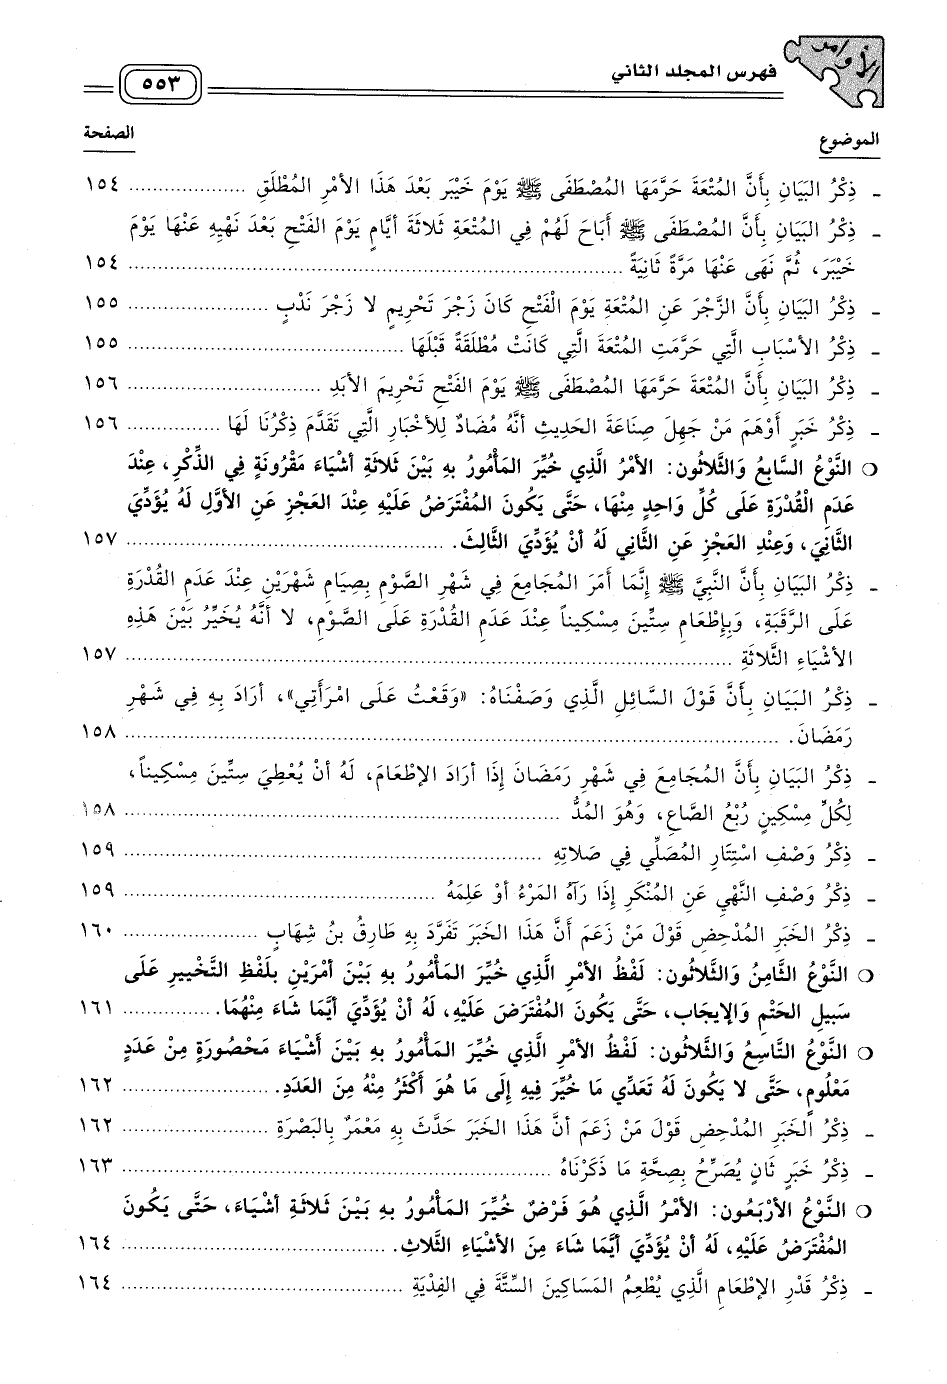 الأوامر
فهرس المجلد الثاني
٥٥٣
الموضوع
الصفحة
- ذِكْرُ البَيَانِ بِأَنَّ المُتْعَةَ حَرَّمَهَا المُصْطَفَى ﷺ يَوْمَ خَيْبَر بَعْدَ هَذَا الأمْرِ المُطْلَقِ .................... ١٥٤
- ذِكْرُ البَيَانِ بِأَنَّ المُصْطَفَى ﷺ أَبَاحَ لَهُمْ فِي المُتْعَةِ ثَلاثَةَ أيَّامٍ يَوْمَ الفَتْحِ بَعْدَ نَهْيِهِ عَنْهَا يَوْمَ
خَيْبَرَ، ثُمَّ نَهَى عَنْهَا مَرَّةً ثَانِيَةً .................... ١٥٤
- ذِكْرُ البَيَانِ بِأَنَّ الزَّجْرَ عَنِ المُتْعَةِ يَوْمَ الْفَتْحِ كَانَ زَجْرَ تَحْرِيمٍ لا زَجْرَ نَدْبٍ .................... ١٥٥
- ذِكْرُ الأسْبَابِ الَّتِي حَرَّمَتِ المُتْعَةَ الَّتِي كَانَتْ مُطْلَقَةً قَبْلَهَا .................... ١٥٥
- ذِكْرُ البَيَانِ بِأَنَّ المُتْعَةَ حَرَّمَهَا المُصْطَفَى ﷺ يَوْمَ الفَتْحِ تَحْرِيمَ الأبَدِ .................... ١٥٦
- ذِكْرُ خَبَرٍ أَوْهَمَ مَنْ جَهِلَ صِنَاعَةَ الحَدِيثِ أنَّهُ مُضَادٌ لِلأخْبَارِ الَّتِي تَقَدَّمَ ذِكْرُنَا لَهَا .................... ١٥٦
○ النَّوْعُ السَّابِعُ وَالثَّلاثُون: الأمْرُ الَّذِي خُيِّرَ المَأْمُورُ بِهِ بَيْنَ ثَلاثَةِ أشْيَاءَ مَقْرُونَةٍ فِي الذِّكْرِ، عِنْدَ
عَدَمِ الْقُدْرَةِ عَلَى كُلِّ وَاحِدٍ مِنْهَا، حَتَّى يَكُونَ المُفْتَرَضُ عَلَيْهِ عِنْدَ العَجْزِ عَنِ الأوَّلِ لَهُ يُؤَدِّيَ
الثَّانِيَ، وَعِنْدِ العَجْزِ عَنِ الثَّانِي لَهُ أنْ يُؤَدِّيَ الثَّالِثَ. .................... ١٥٧
- ذِكْرُ البَيَانِ بِأَنَّ النَّبِيَّ ﷺ إنَّمَا أمَرَ المُجَامِعَ فِي شَهْرِ الصَّوْمِ بِصِيَامِ شَهْرَيْنِ عِنْدَ عَدَمِ القُدْرَةِ
عَلَى الرَّقَبَةِ، وَبِإطْعَامِ سِتِّينَ مِسْكِيناً عِنْدَ عَدَمِ القُدْرَةِ عَلَى الصَّوْمِ، لا أنَّهُ يُخَيِّرُ بَيْنَ هَذِهِ
الأشْيَاءِ الثَّلاثَةِ .................... ١٥٧
- ذِكْرُ البَيَانِ بِأَنَّ قَوْلَ السَّائِلِ الَّذِي وَصَفْنَاهُ: «وَقَعْتُ عَلَى امْرَأتِي»، أرَادَ بِهِ فِي شَهْرِ
رَمَضَانَ. .................... ١٥٨
- ذِكْرُ البَيَانِ بِأَنَّ المُجَامِعَ فِي شَهْرِ رَمَضَانَ إذَا أرَادَ الإطْعَامَ، لَهُ أنْ يُعْطِيَ سِتِّينَ مِسْكِيناً،
لِكُلِّ مِسْكِينٍ رُبْعُ الصَّاعِ، وَهُوَ المُدُّ .................... ١٥٨
- ذِكْرُ وَصْفِ اسْتِتَارِ المُصَلِّي فِي صَلاتِهِ .................... ١٥٩
- ذِكْرُ وَصْفِ النَّهْيِ عَنِ المُنْكَرِ إذَا رَآهُ المَرْءُ أوْ عَلِمَهُ .................... ١٥٩
- ذِكْرُ الخَبَرِ المُدْحِضِ قَوْلَ مَنْ زَعَمَ أنَّ هَذَا الخَبَرَ تَفَرَّدَ بِهِ طَارِقُ بنُ شِهَابٍ .................... ١٦٠
○ النَّوْعُ الثَّامِنُ وَالثَّلاثُون: لَفْظُ الأمْرِ الَّذِي خُيِّرَ المَأْمُورُ بِهِ بَيْنَ أمْرَيْنِ بِلَفْظِ التَّخْيِيرِ عَلَى
سَبِيلِ الحَتْمِ وَالإيجَابِ، حَتَّى يَكُونَ المُفْتَرَضَ عَلَيْهِ، لَهُ أنْ يُؤَدِّيَ أيَّمَا شَاءَ مِنْهُمَا. .................... ١٦١
○ النَّوْعُ التَّاسِعُ وَالثَّلاثُون: لَفْظُ الأمْرِ الَّذِي خُيِّرَ المَأْمُورُ بِهِ بَيْنَ أشْيَاءَ مَحْصُورَةٍ مِنْ عَدَدٍ
مَعْلُومٍ، حَتَّى لا يَكُونَ لَهُ تَعَدِّي مَا خُيِّرَ فِيهِ إلَى مَا هُوَ أكْثَرُ مِنْهُ مِنَ العَدَدِ. .................... ١٦٢
- ذِكْرُ الخَبَرِ المُدْحِضِ قَوْلَ مَنْ زَعَمَ أنَّ هَذَا الخَبَرَ حَدَّثَ بِهِ مَعْمَرٌ بِالبَصْرَةِ .................... ١٦٢
- ذِكْرُ خَبَرٍ ثَانٍ يُصَرِّحُ بِصِحَّةِ مَا ذَكَرْنَاهُ .................... ١٦٣
○ النَّوْعُ الأرْبَعُون: الأمْرُ الَّذِي هُوَ فَرْضٌ خُيِّرَ المَأْمُورُ بِهِ بَيْنَ ثَلاثَةِ أشْيَاءَ، حَتَّى يَكُونَ
المُفْتَرَضُ عَلَيْهِ، لَهُ أنْ يُؤَدِّيَ أيَّمَا شَاءَ مِنَ الأشْيَاءِ الثَّلاثِ. .................... ١٦٤
- ذِكْرُ قَدْرِ الإطْعَامِ الَّذِي يُطْعِمُ المَسَاكِينَ السِّتَّةَ فِي الفِدْيَةِ .................... ١٦٤